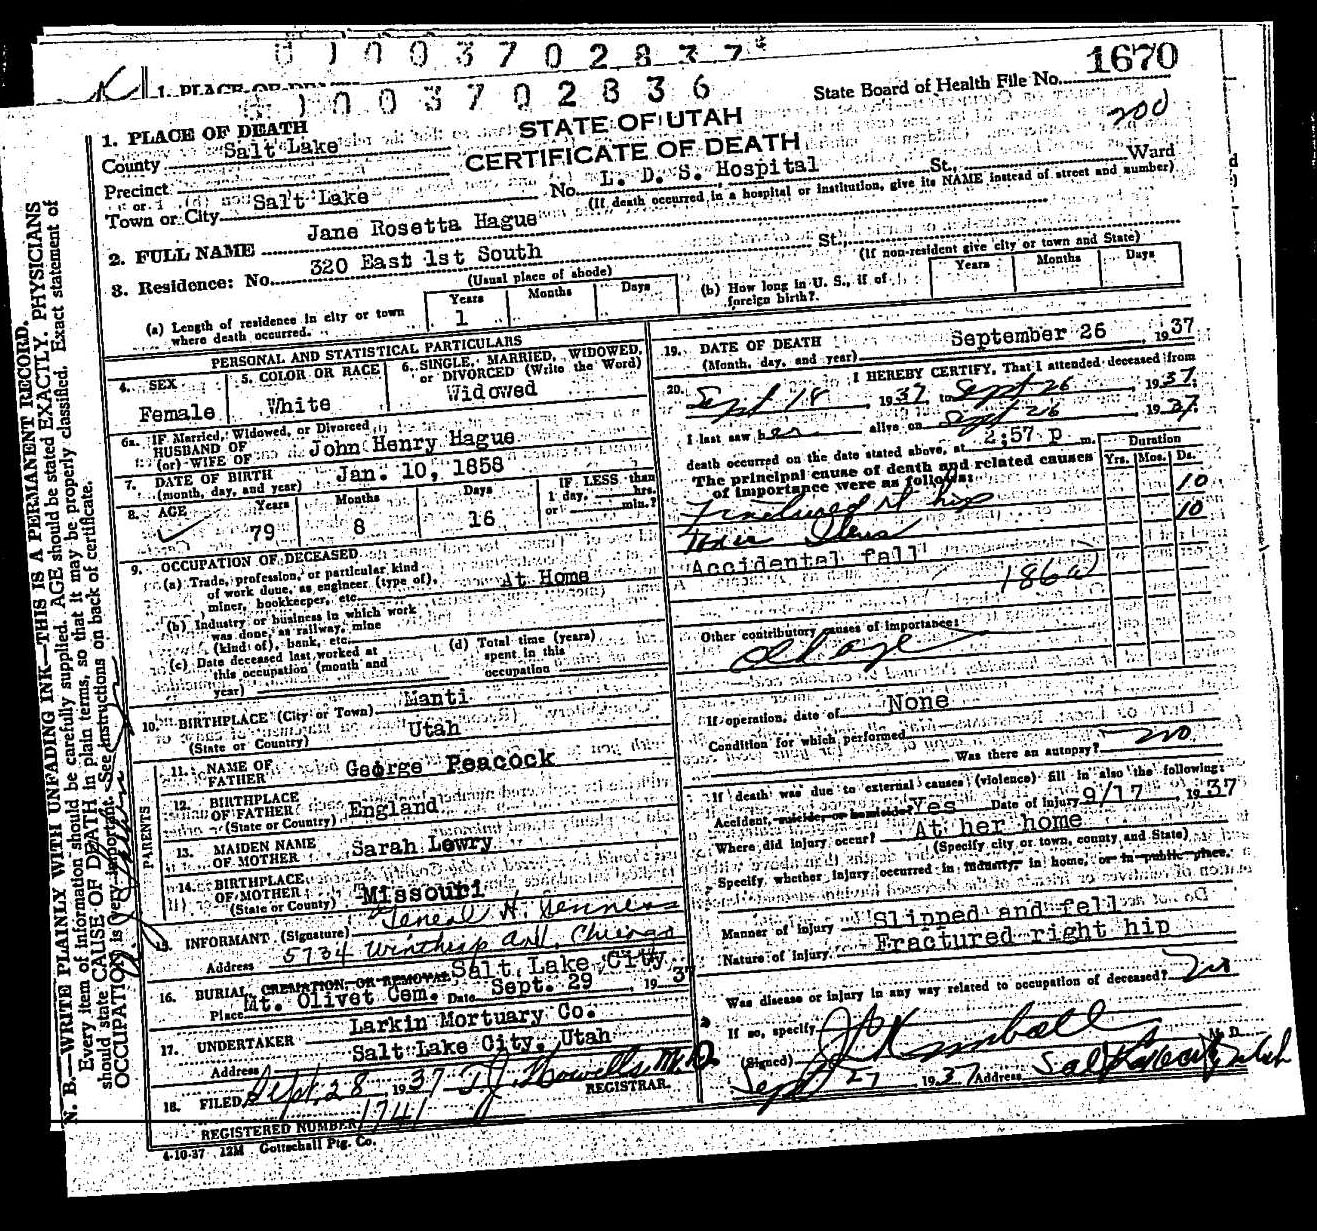 0100370283 7
1. PLACE OF DEATH
0100370 2836
State Board of Health File No. 1670
200
STATE OF UTAH
CERTIFICATE OF DEATH
1. PLACE OF DEATH
County Salt Lake
Precinct
or
Town or City Salt Lake
No. L. D. S. Hospital St., Ward
(If death occurred in a hospital or institution, give its NAME instead of street and number)
2. FULL NAME Jane Rosetta Hague
3. Residence: No. 320 East 1st South St.,
(Usual place of abode)
(If non-resident give city or town and State)
(a) Length of residence in city or town
where death occurred.
Years Months Days
1
(b) How long in U. S., if of
foreign birth?
Years Months Days
PERSONAL AND STATISTICAL PARTICULARS
4. SEX
Female
5. COLOR OR RACE
White
6. SINGLE, MARRIED, WIDOWED,
or DIVORCED (Write the Word)
Widowed
6a. IF Married, Widowed, or Divorced
HUSBAND OF
(or) WIFE OF John Henry Hague
7. DATE OF BIRTH
(month, day, and year) Jan. 10, 1858
8. AGE Years Months Days
79 8 16
IF LESS than
1 day, hrs.
or min.?
9. OCCUPATION OF DECEASED
(a) Trade, profession, or particular kind
of work done, as engineer (type of),
miner, bookkeeper, etc. At Home
(b) Industry or business in which work
was done, as railway, mine
(kind of), bank, etc.
(c) Date deceased last worked at
this occupation (month and
year)
(d) Total time (years)
spent in this
occupation
10. BIRTHPLACE (City or Town) Manti
(State or Country) Utah
PARENTS
11. NAME OF
FATHER George Peacock
12. BIRTHPLACE
OF FATHER
(State or Country) England
13. MAIDEN NAME
OF MOTHER Sarah Lowry
14. BIRTHPLACE
OF MOTHER
(State or Country) Missouri
15. INFORMANT (Signature)
Address 5734 Winthrop Chicago
16. BURIAL, CREMATION, OR REMOVAL Salt Lake City
Place Mt. Olivet Cem. Date Sept. 29, 1937
17. UNDERTAKER Larkin Mortuary Co.
Address Salt Lake City, Utah
18. FILED, Sept. 28 1937 T J Howells, M.D.
REGISTRAR.
REGISTERED NUMBER 1741
4-10-37 12M Gottschall Ptg. Co.
19. DATE OF DEATH
(Month, day, and year) September 26, 1937
20. I HEREBY CERTIFY, That I attended deceased from
Sept 18, 1937, to Sept 26, 1937,
I last saw her alive on Sept 26, 1937
death occurred on the date stated above, at 2:57 p m.
The principal cause of death and related causes
of importance were as follows:
Duration
Yrs. Mos. Ds.
Fractured rt hip 10
Toxic Ileus 10
Accidental fall
186a
Other contributory causes of importance:
Old age
If operation, date of None
Condition for which performed
Was there an autopsy? no
If death was due to external causes (violence) fill in also the following:
Accident, suicide or homicide? Yes Date of injury 9/17 1937
Where did injury occur? At her home
(Specify city or town, county and State)
Specify whether injury occurred in industry, in home, or in public place.
Manner of injury Slipped and fell
Nature of injury Fractured right hip
Was disease or injury in any way related to occupation of deceased? No
If so, specify
(Signed) Kimball M. D.
Sept 27 1937 Address Salt Lake City Utah
N. B.—WRITE PLAINLY WITH UNFADING INK—THIS IS A PERMANENT RECORD.
Every item of information should be carefully supplied. AGE should be stated EXACTLY. PHYSICIANS
should state CAUSE OF DEATH in plain terms, so that it may be properly classified. Exact statement of
OCCUPATION is very important. See instructions on back of certificate.